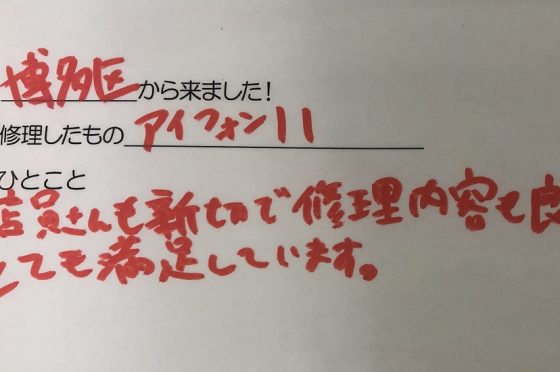 博多区から来ました!
修理したもの アイフォン11
ひとこと
店員さんも新切で修理内容も良
とても満足しています。